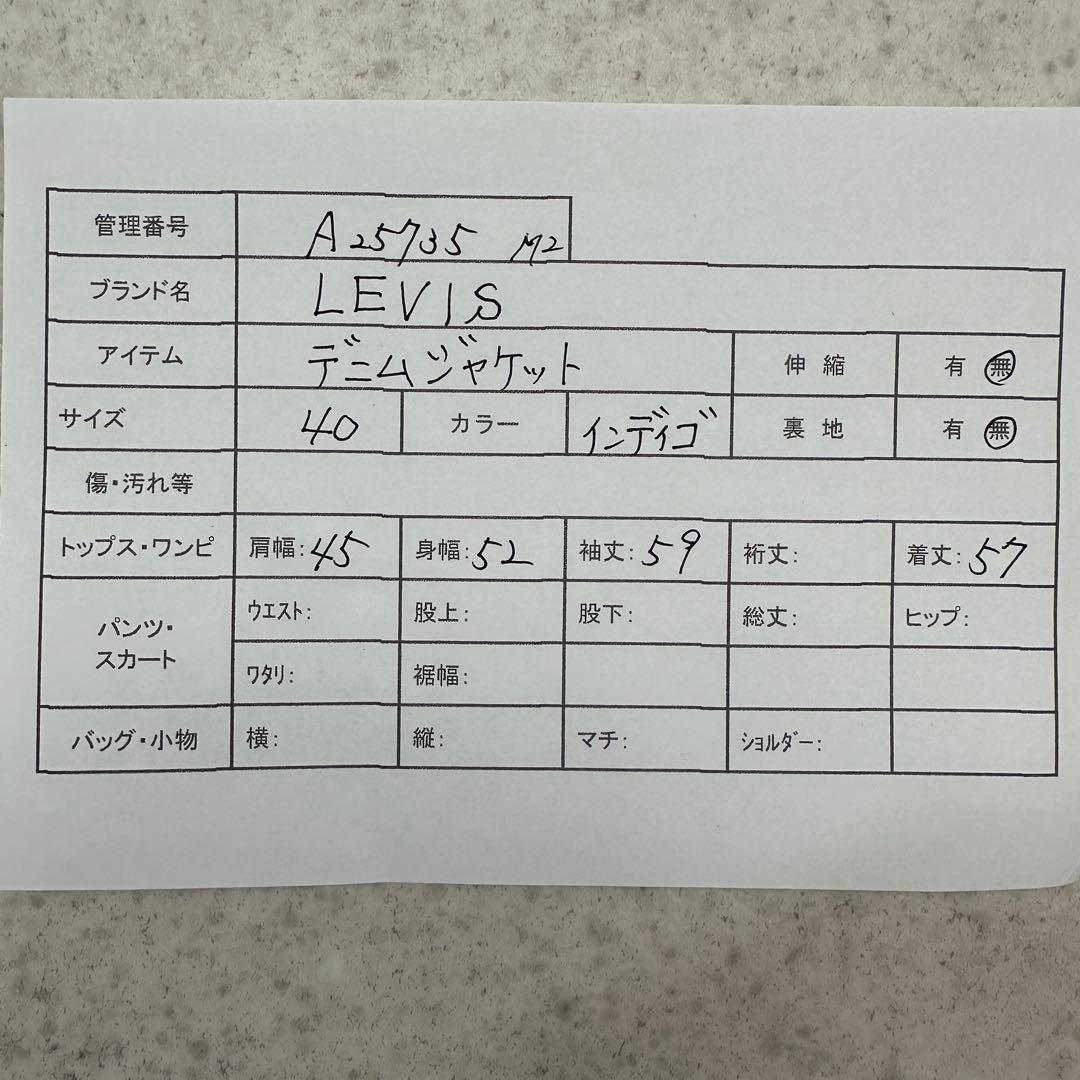 管理番号 A25735 M2
ブランド名 LEVIS
アイテム デニムジャケット 伸縮 有 無
サイズ 40 カラー インディゴ 裏地 有 無
傷・汚れ等
トップス・ワンピ 肩幅:45 身幅:52 袖丈:59 裄丈: 着丈:57
パンツ・スカート ウエスト: 股上: 股下: 総丈: ヒップ:
ワタリ: 裾幅:
バッグ・小物 横: 縦: マチ: ショルダー: